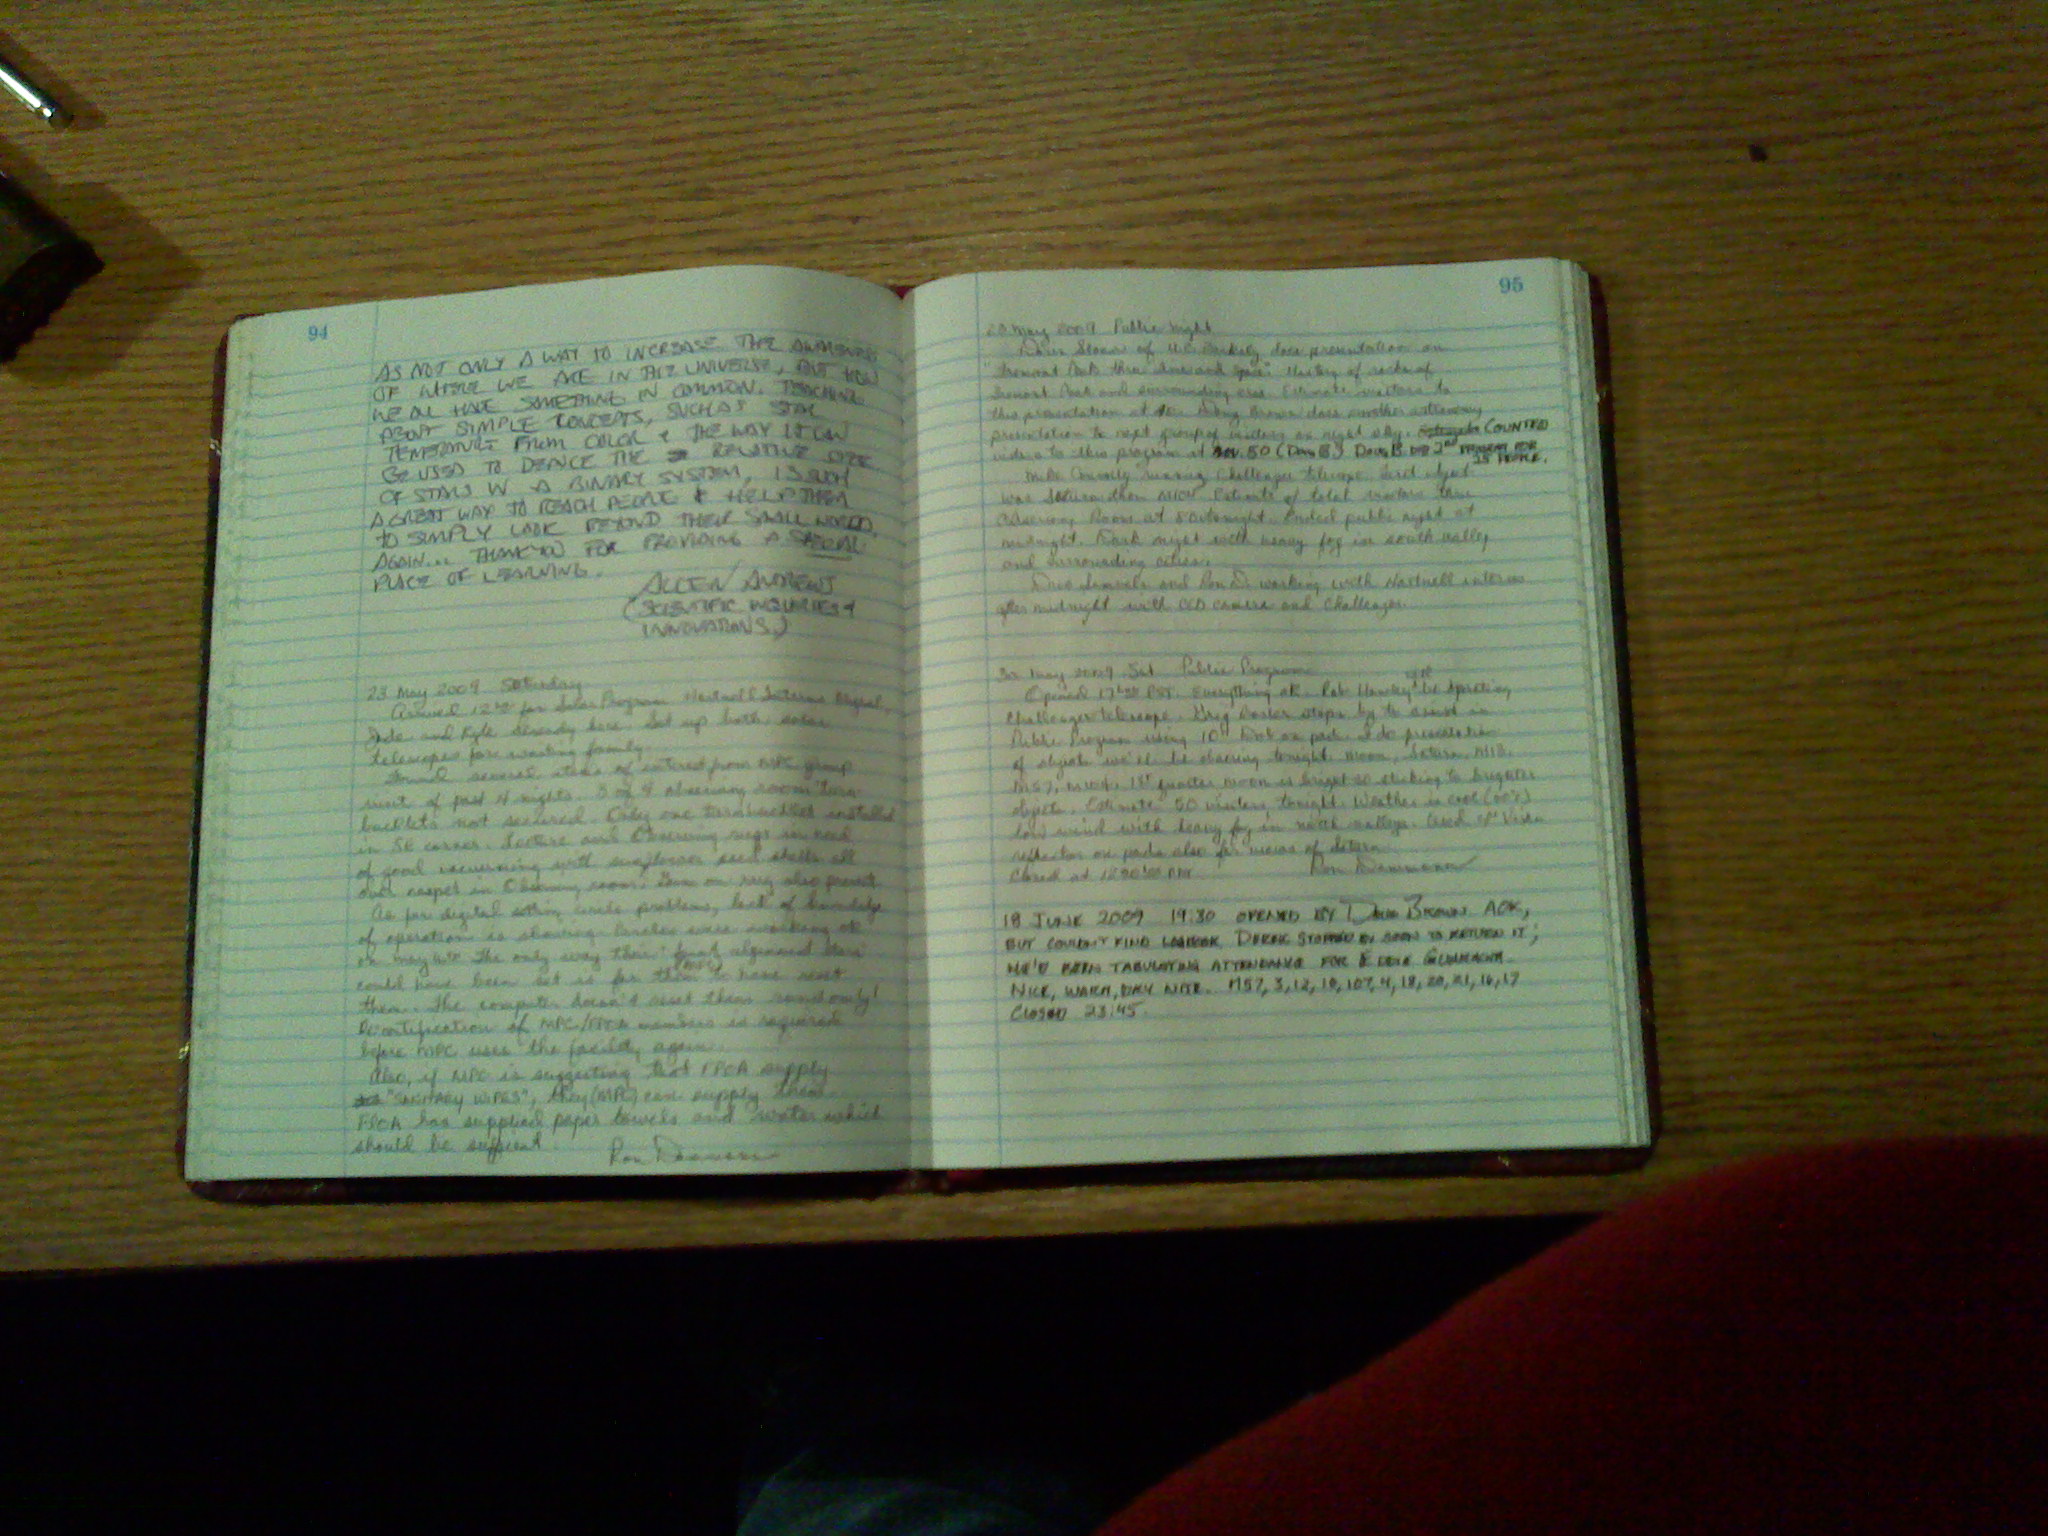 94
AS NOT ONLY A WAY TO INCREASE THE AWARENESS
OF WHERE WE ARE IN THE UNIVERSE, BUT HOW
WE ALL HAVE SOMETHING IN COMMON. TEACHING
ABOUT SIMPLE CONCEPTS, SUCH AS STAR
TEMERATURE FROM COLOR & THE WAY IT CAN
BE USED TO DEDUCE THE RELATIVE SIZE
OF STARS IN A BINARY SYSTEM, IS SUCH
A GREAT WAY TO REACH PEOPLE & HELP THEM
TO SIMPLY LOOK BEYOND THEIR SMALL WORLD.
AGAIN... THANKYOU FOR PROVIDING A SPECIAL
PLACE OF LEARNING.
ALLEN ANDREWS
(SCIENTIFIC INQUIRIES &
INNOVATIONS)
23 May 2009 Saturday
Arrived for Solar Program Hartnell Interns
and Kyle already here Set up both solar
telescopes for waiting family.
Found several items of interest from MPC group
visit of past 4 nights. 3 of 4 observing room turn
buckles not secured. Only one turnbuckle installed
in SE corner. Lecture and Observing rugs in need
of good vacuuming with sunflower seed shells all
over carpet in Observing room. Gum on rug also present
As for digital setting circle problems, lack of knowledge
of operation is showing. Circles were working ok
on May The only way their alignment stars
could have been set is for them (MPC) to have reset
them. The computer doesn't reset them randomly!
Recertification of MPC/FPOA members is required
before MPC uses the facility again.
Also, if MPC is suggesting that FPOA supply
"SANITARY WIPES", they (MPC) can supply them.
FPOA has supplied paper towels and water which
should be
Ron Dammann
95
May 2009 Public Night
of UC Berkeley does presentation on
"Fremont Peak thru time and space". History of rocks of
Fremont Peak and surrounding area Estimate visitors to
this presentation at Doug Brown does another astronomy
presentation to next group of visitors on night sky. COUNTED
visitors to this program at 50 (Doug B) Doug B DID 2nd PROGRAM FOR
25 PEOPLE.
Mike running Challenger telescope. First object
was Saturn then Estimate of total visitors thru
Observing Room at 80 tonight. Ended public night at
midnight. Dark night with heavy fog in south valley
and surrounding cities.
Dave Samuels and Ron D. working with Hartnell interns
after midnight with CCD camera and Challenger.
30 May 2009 Sat Public Program
Opened PST. Everything ok. Rob Hawley will be operating
Challenger telescope. Greg stops by to assist in
Public Program using 10" Dob on pad. I do presentation
of objects we'll be observing tonight. Moon, Saturn, M13.
M57, 1st quarter moon is bright so sticking to brighter
objects. Estimate 50 visitors tonight. Weather is cool
low wind with heavy fog in north valleys. Used Vixen
refractor on pads also for views of Saturn.
Closed at
Ron Dammann
18 JUNE 2009 19:30 OPENED BY DOUG BROWN AOK,
BUT COULDN'T FIND LOGBOOK. DEREK STOPPED BY SOON TO RETURN IT;
HE'D BEEN TABULATING ATTENDANCE FOR EDDIE
NICE, WARM, DRY NITE. M57, 3, 12, 10, 107, 4, 18, 20, 21, 16, 17
CLOSED 23:45.